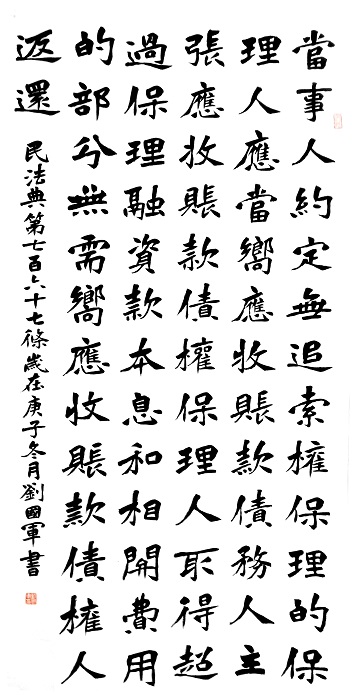 當事人約定無追索權保理的保
理人應當嚮應收賬款債務人主
張應收賬款債權保理人取得超
過保理融資款本息和相開費用
的部分無需嚮應收賬款債權人
返還
民法典第七百六十七條歲在庚子冬月劉國軍書